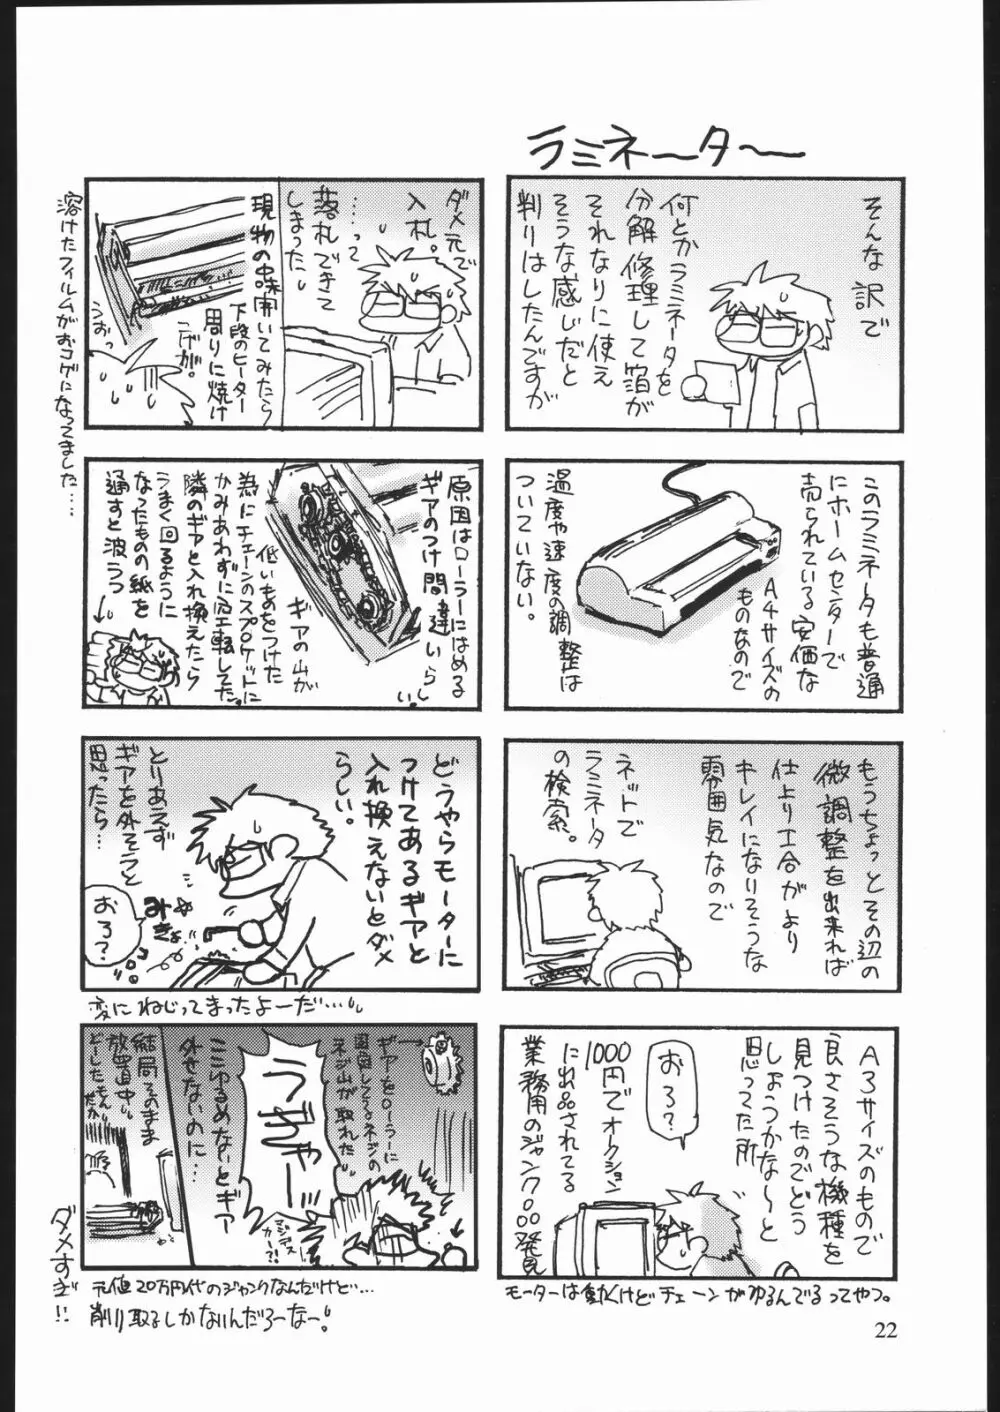 ラミネーター
そんな訳で
何とかラミネータを
分解修理して箔が
それなりに使え
そうな感じだと
判りはしたんですが
このラミネータも普通
にホームセンターで
売られている安価な
A4サイズの
ものなので
温度や速度の調整は
ついていない。
もうちょっとその辺の
微調整を出来れば
仕上り工合がより
キレイになりそうな
雰囲気なので
ネットで
ラミネータ
の検索。
A3サイズのもので
良さそうな機種を
見つけたのでどう
しょうかな〜と
思ってた所
おろ?
1000円でオークション
に出品されてる
業務用のジャンク品発見
モーターは動くけどチェーンがゆるんでるってやつ。
ダメ元で
入札。
……って
落札できて
しまったし
現物の中味開いてみたら
下段のヒーター
周りに焼け
こげが。
うおっ
溶けたフィルムがおコゲになってました…
原因はローラーにはめる
ギアのつけ間違いらしい。
ギアの山が
低いものをつけた
為にチェーンのスプロケットに
かみあわずに空転してた。
隣のギアと入れ換えたら
うまく回るように
なったものの紙を
通すと波うつ
どうやらモーターに
つけてあるギアと
入れ換えないとダメ
らしい。
とりあえず
ギアを外そうと
思ったら…
みきょ
おろ?
変にねじってまったよーだ…
ギアをローラーに
固定してるネジの
ネジ山が取れた
うぎゃー
マジデスカー?!
ここゆるめないとギア
外せないのに…
結局そのまま
放置中
どーしたもんだか
元値20万円代のジャンクなんだけど…
削り取るしかないんだろーなー。
ダメすぎ!!
22